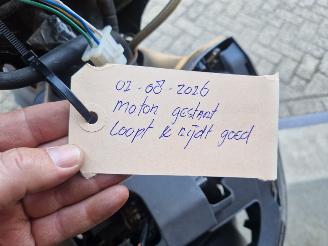 01-08-2026
Moton gestart
Loopt & rijdt goed